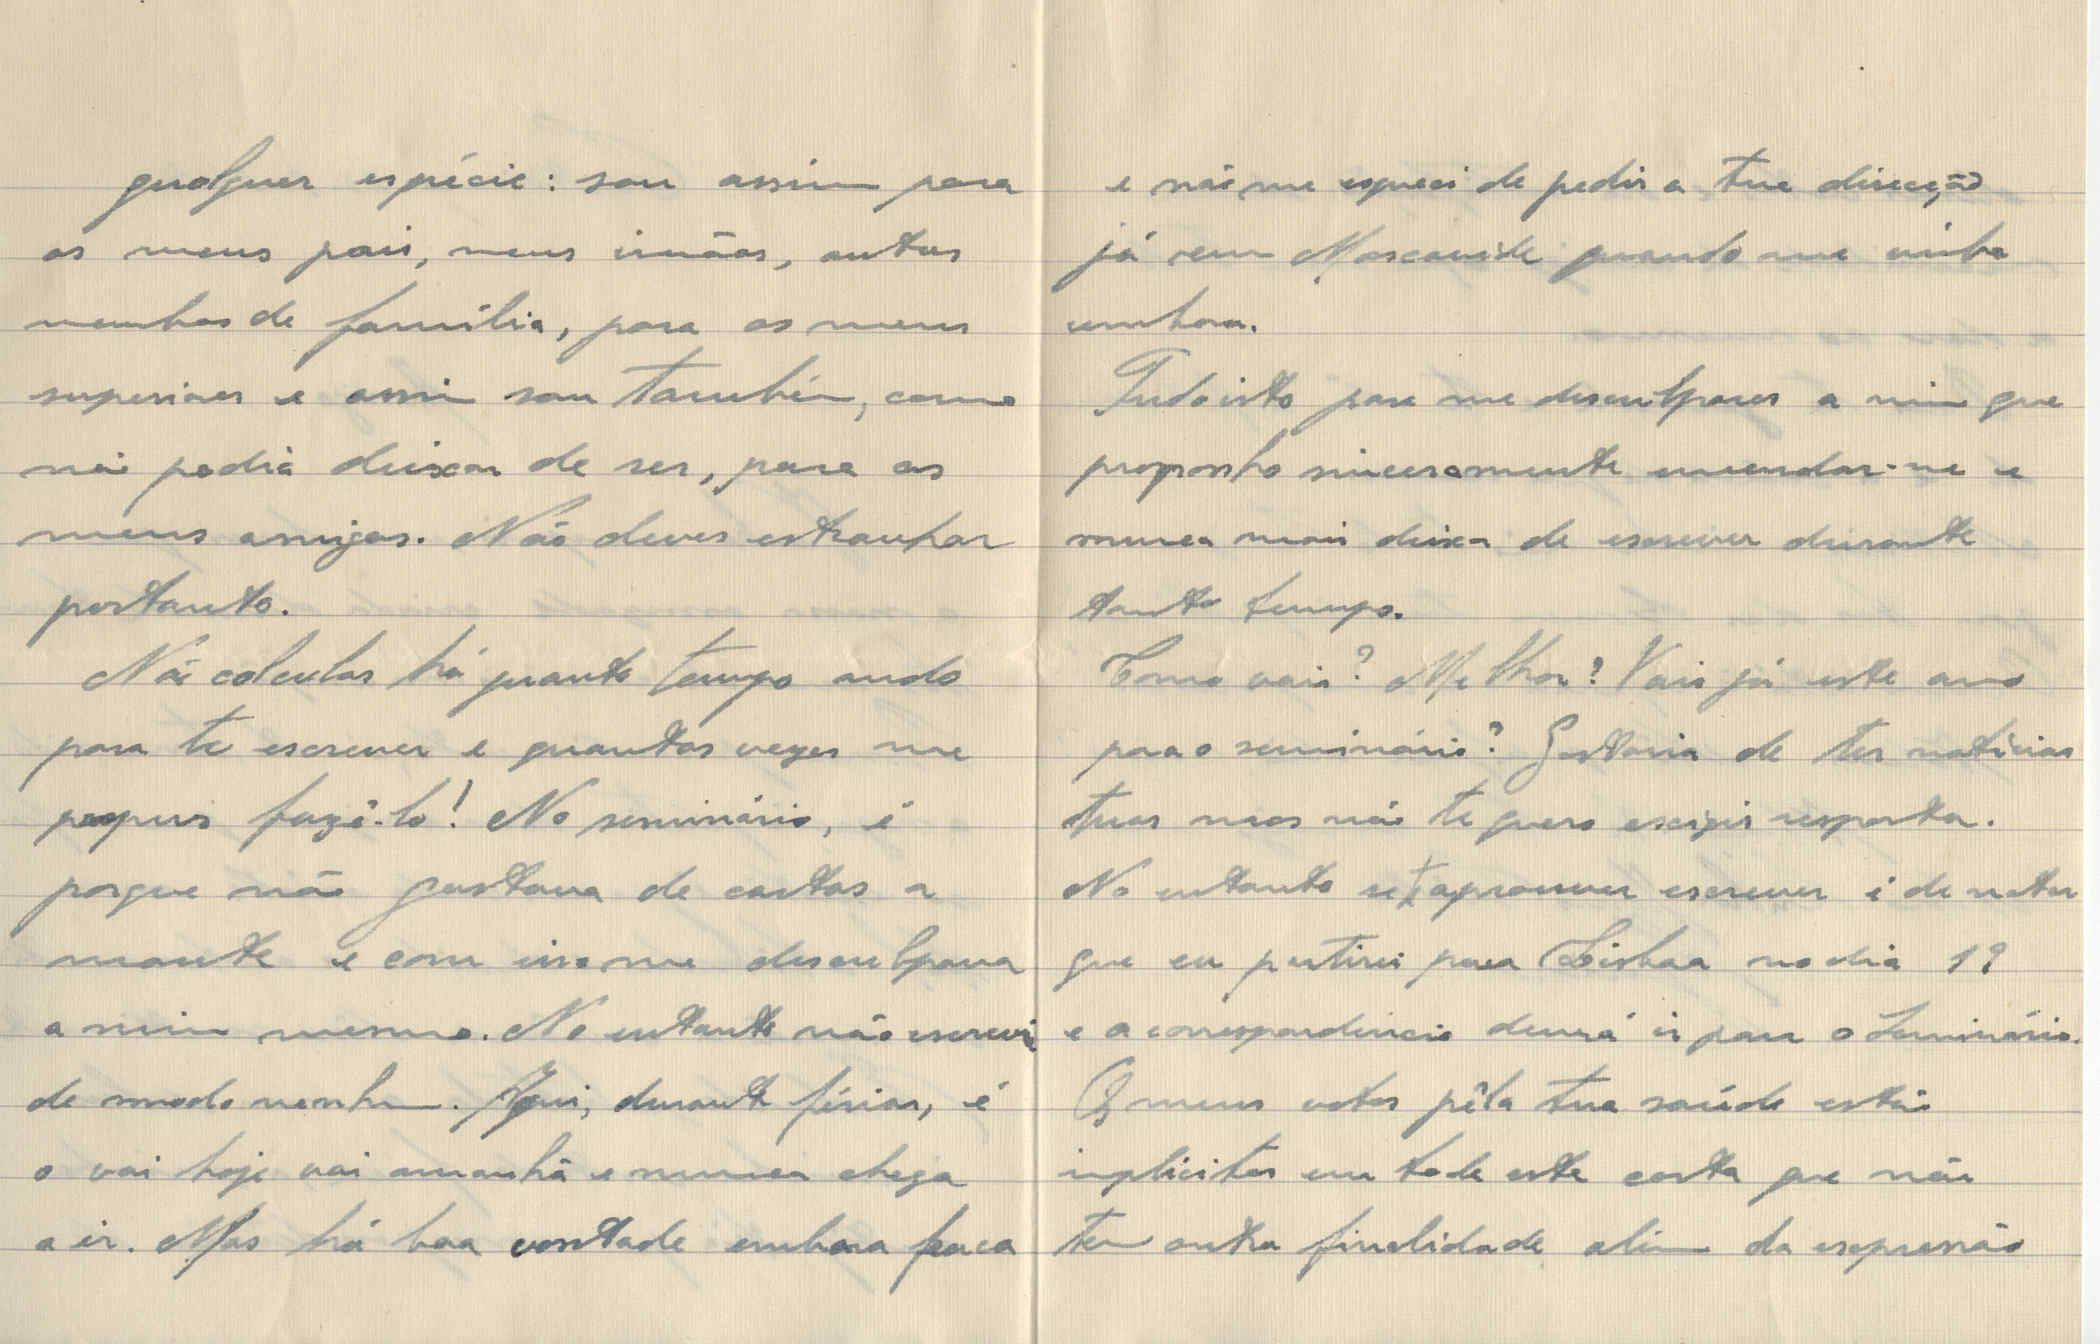 qualquer espécie: sou assim para
os meus pais, meus irmãos, outros
membros de família, para os meus
superiores e assim sou também, como
não podia deixar de ser, para os
meus amigos. Não deves estranhar
portanto.
Não calculas há quanto tempo ando
para te escrever e quantas vezes me
propus fazê-lo! No seminário, é
porque não gostava de cartas a
monte e com isso me desculpava
a mim mesmo. No entanto não escrevi
de modo nenhum. Aqui, durante férias, é
o vai hoje vai amanhã e nunca chega
a ir. Mas há boa vontade embora fraca
e não me esqueci de pedir a tua direcção
já em Moscavide quando me vinha
embora.
Tudo isto para me desculpares a mim que
proponho sinceramente emendar-me e
nunca mais deixar de escrever durante
tanto tempo.
Como vais? Melhor? Vais já este ano
para o seminário? Gostaria de ter notícias
tuas mas não te quero exigir resposta.
No entanto se te aprouver escrever é de notar
que eu partirei para Lisboa no dia 19
e a correspondência deverá ir para o Seminário.
Os meus votos pêla tua saúde estão
implícitos em toda esta carta que não
tem outra finalidade além da expressão